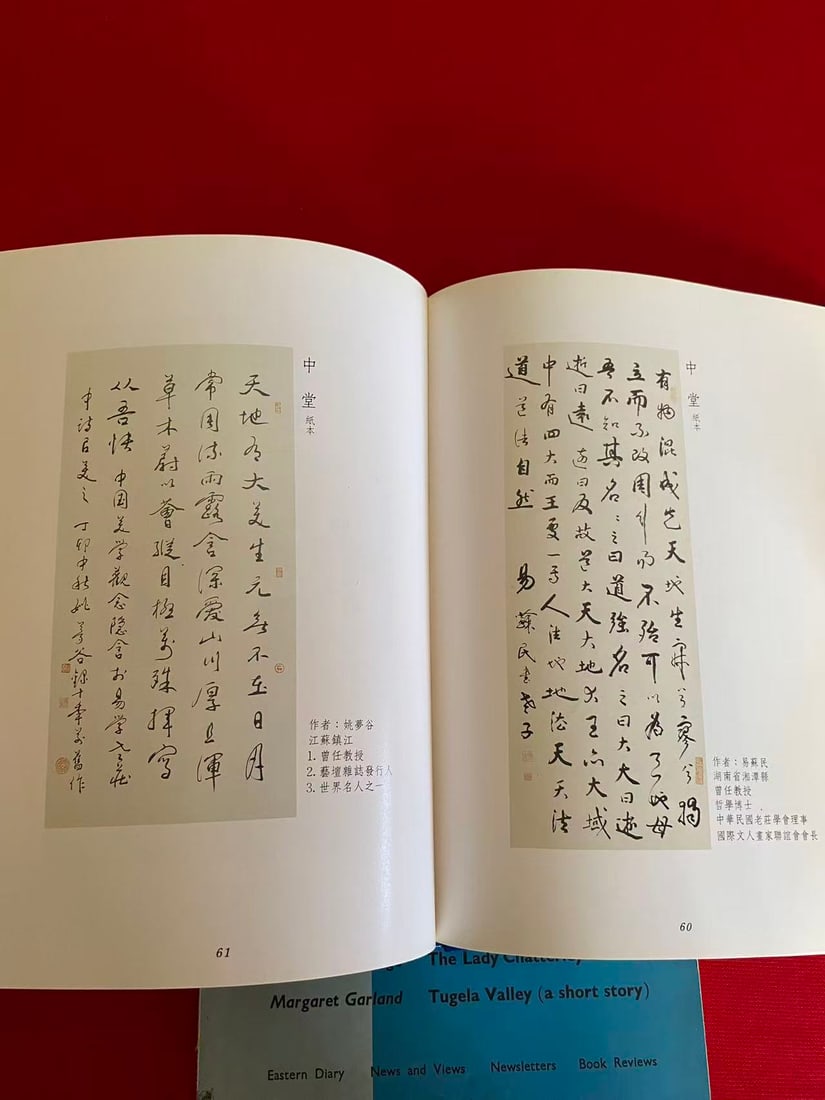 中堂 紙本
有物混成先天地生寂兮寥兮獨
立而不改周行而不殆可以為天地母
吾不知其名〻之曰道強名之曰大大曰逝
逝曰遠遠曰反故道大天大地大王亦大域
中有四大而王處一焉人法地地法天天法
道道法自然 易蘇民書老子
作者：易蘇民
湖南省湘潭縣
曾任教授
哲學博士
中華民國老莊學會理事
國際文人畫家聯誼會會長
60
中堂 紙本
天地有大美生元無不在日月
常周流雨露含深愛山川厚且渾
草木蔚以薈縱目極萬殊揮寫
从吾快 中国美学觀念隐含於易學老莊
中詩以美之 丁卯中秋姚夢谷錄十年前舊作
作者：姚夢谷
江蘇鎮江
1. 曾任教授
2. 藝壇雜誌發行人
3. 世界名人之一
61
The Lady Chatterley
Margaret Garland Tugela Valley (a short story)
Eastern Diary News and Views Newsletters Book Reviews